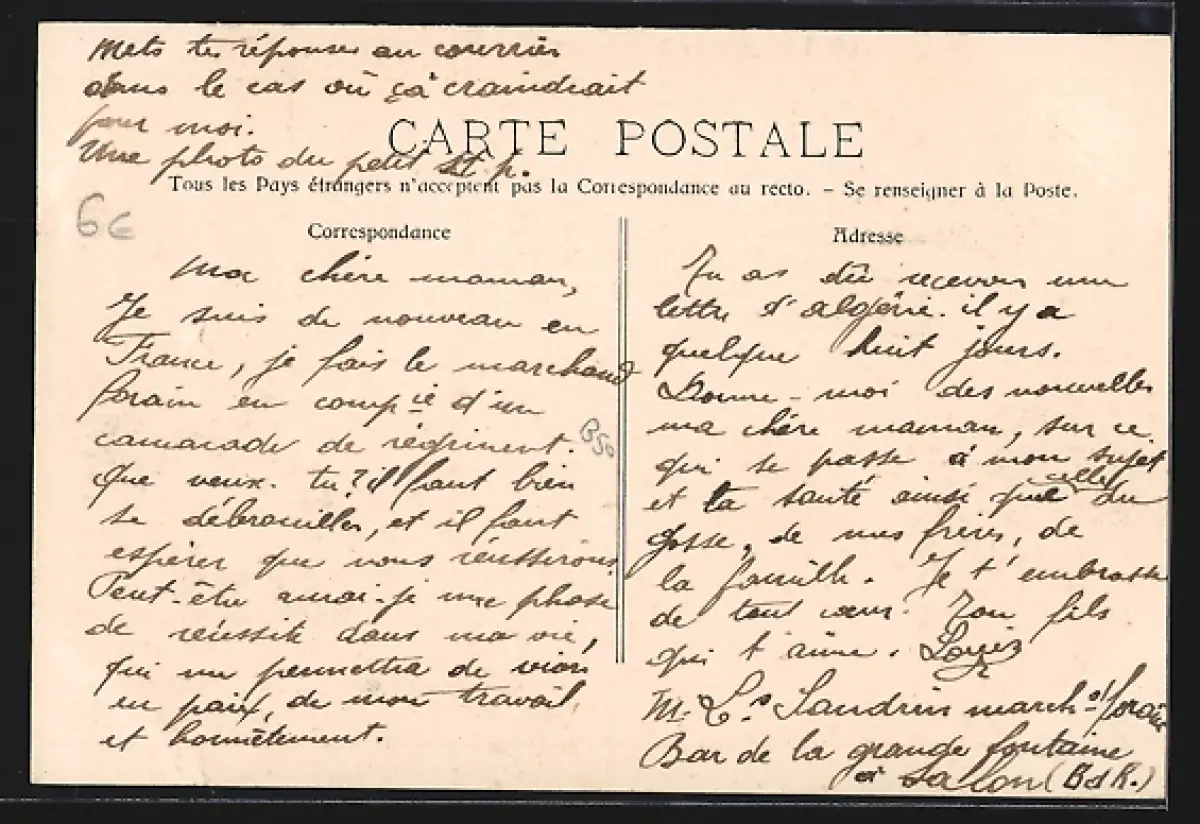 Mets tes réponses au courrier
dans le cas où ça craindrait
pour moi.
Une photo du petit
CARTE POSTALE
Tous les Pays étrangers n'acceptent pas la Correspondance au recto. – Se renseigner à la Poste.
6€
Correspondance
Ma chère maman,
Je suis de nouveau en
France, je fais le marchand
forain en comp^ie d'un
camarade de régiment.
Que veux-tu? il faut bien
se débrouiller, et il faut
espérer que nous réussirons.
Peut-être aurai-je une phase
de réussite dans ma vie,
qui me permettra de vivre
en paix, de mon travail,
et honnêtement.
B50
Adresse
Tu as dû recevoir une
lettre d'algérie. il y a
quelque huit jours.
Donne-moi des nouvelles
ma chère maman, sur ce
qui se passe à mon sujet
et ta santé ainsi que celle du
gosse, de mes frères, de
la famille. Je t'embrasse
de tout cœur. Ton fils
qui t'aime. Louis
M. L^s Landrin march^d forain
Bar de la grande fontaine
à Salon (B d R.)